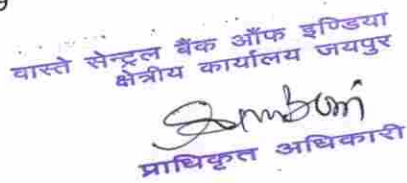 वास्ते सेन्ट्रल बैंक ऑफ इण्डिया
क्षेत्रीय कार्यालय जयपुर
प्राधिकृत अधिकारी